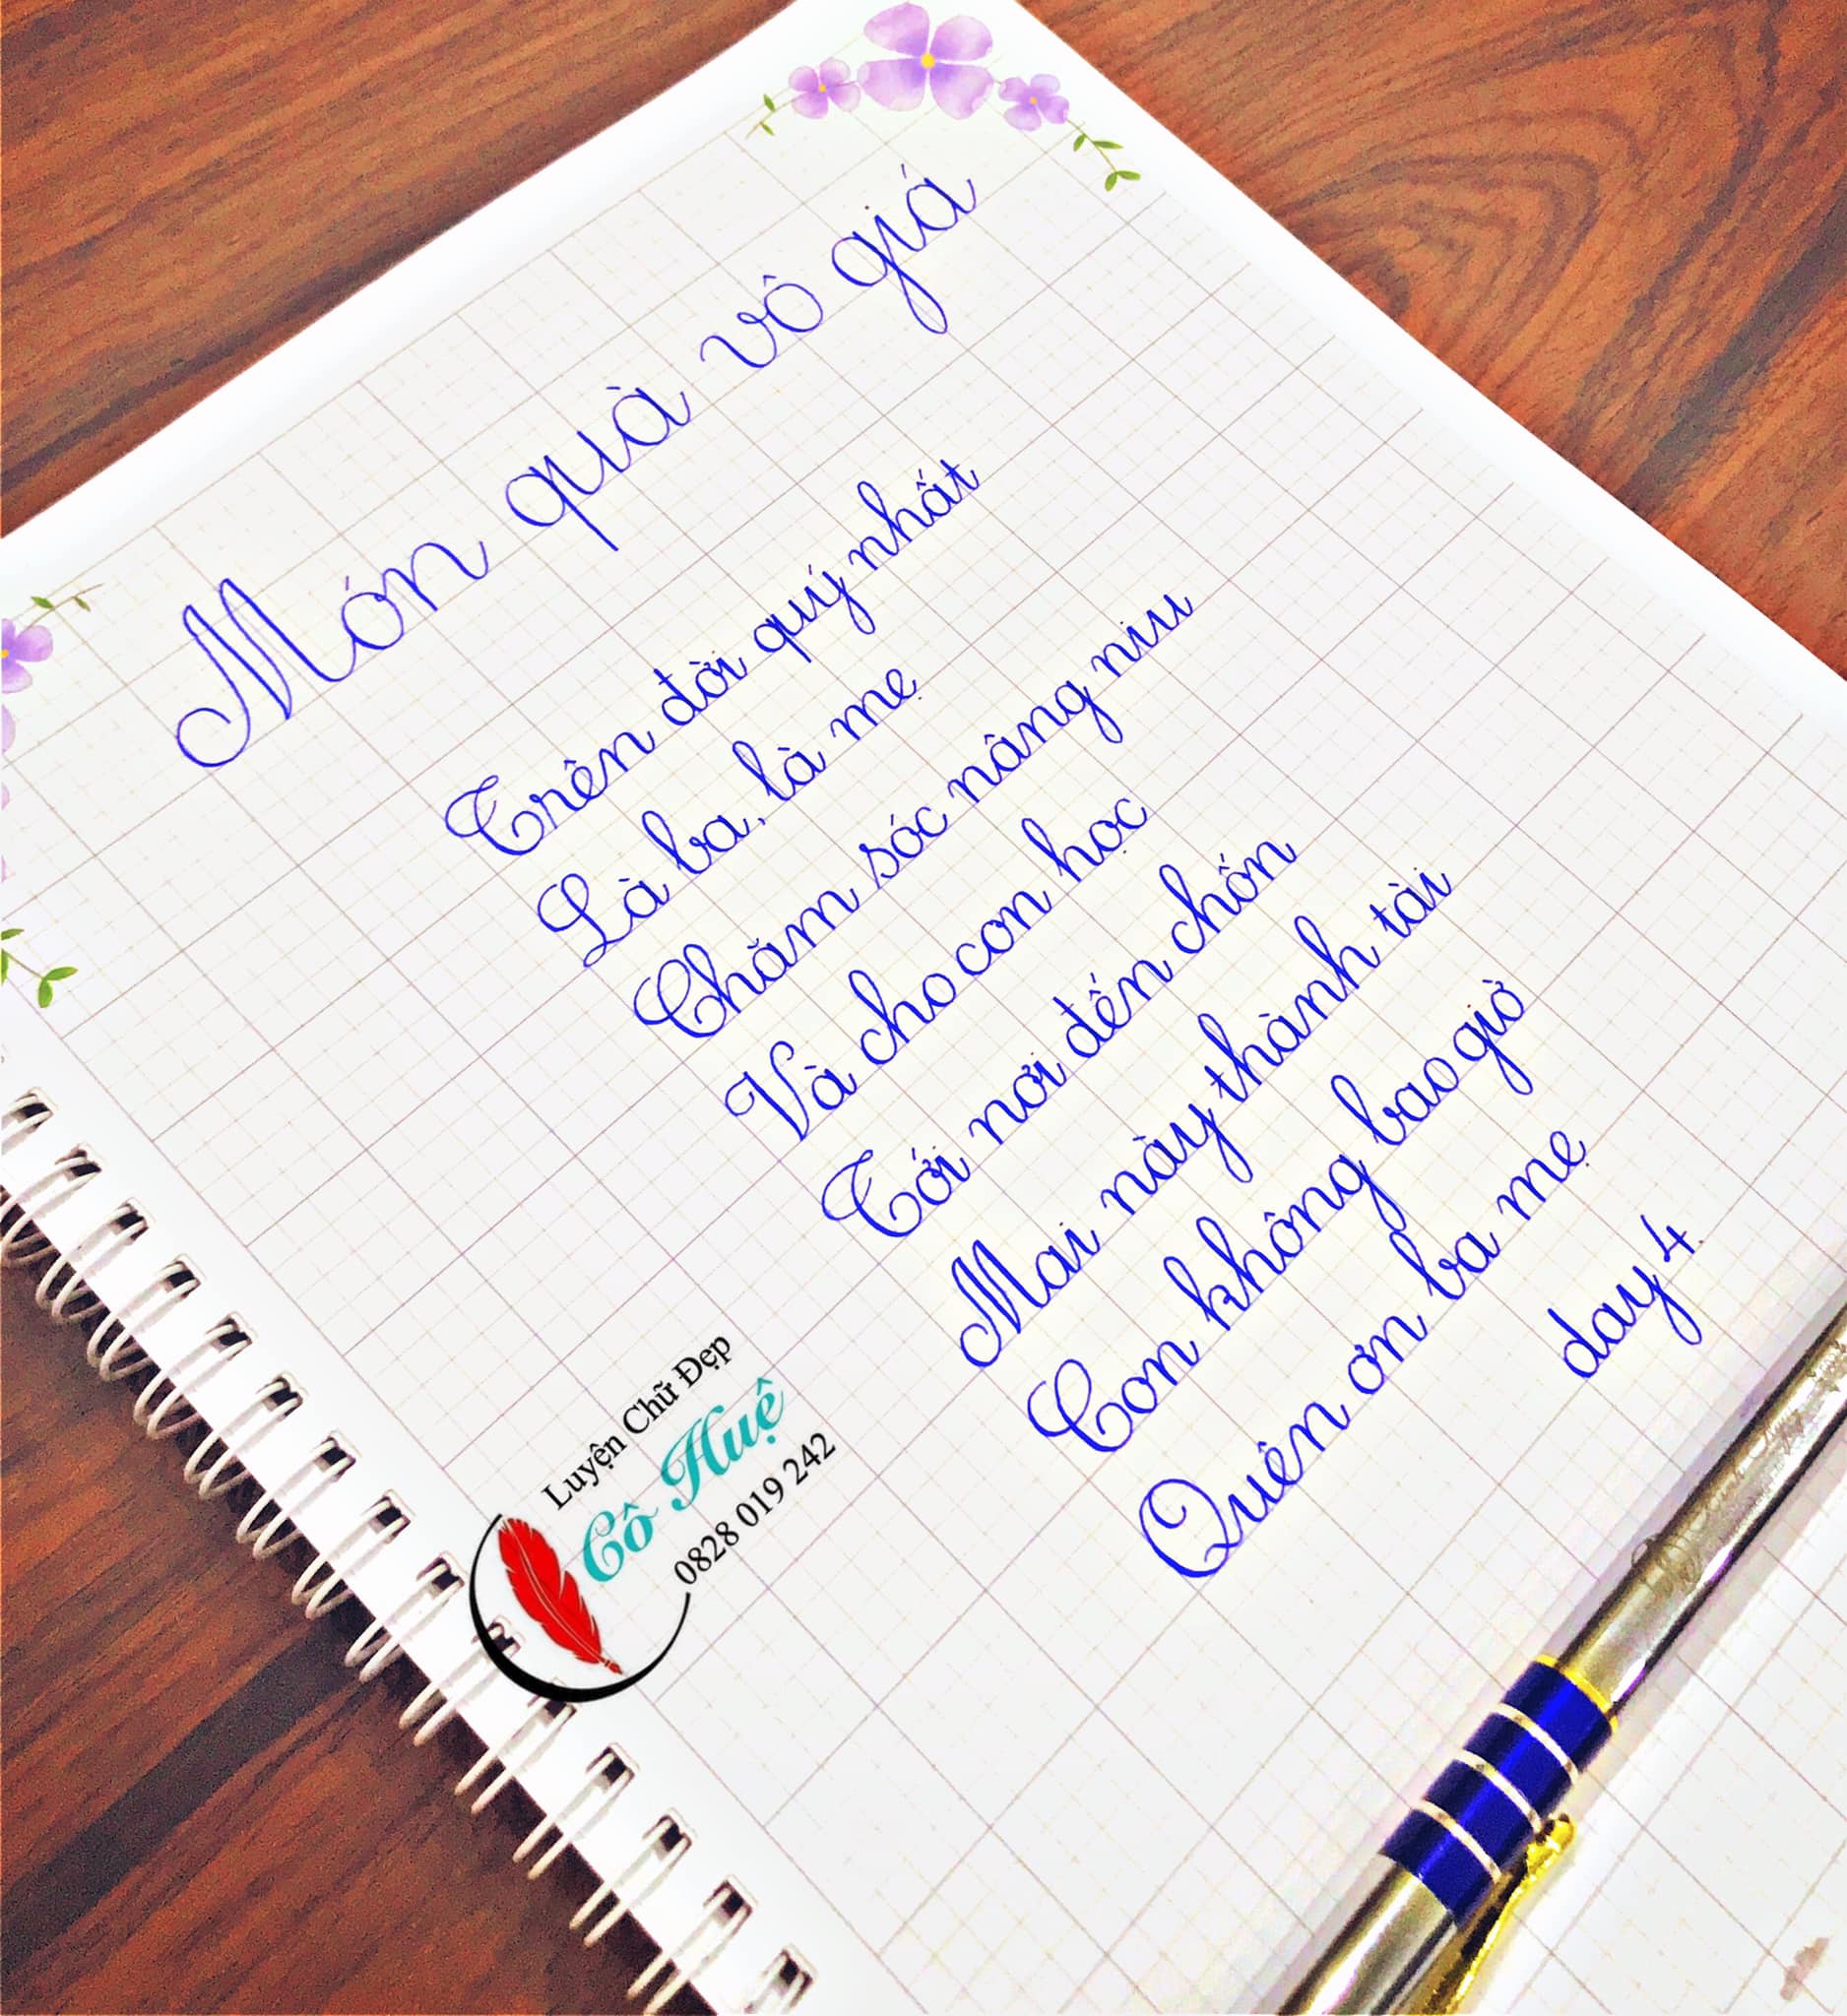 Món quà vô giá
Trên đời quý nhất
Là ba, là mẹ
Chăm sóc nâng niu
Và cho con học
Tới nơi đến chốn
Mai này thành tài
Con không bao giờ
Quên ơn ba mẹ
day 4.
Luyện Chữ Đẹp
Cô Huệ
0828 019 242